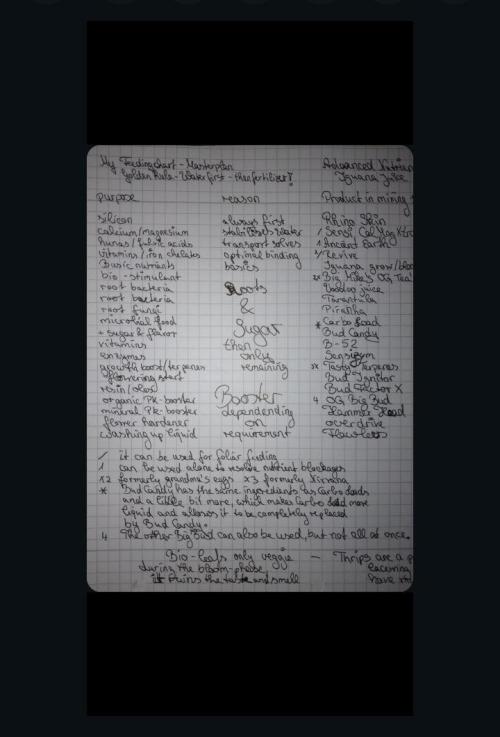 My Feedingchart - Masterplan Advanced Nutrien
Golden Rule - Water first - then fertilizer! Iguana Juice
purpose reason Product in mixing
silicon always first Rhino Skin
calcium/magnesium stabilises water / Sensi Cal Mag Xtra
humas/fulvic acids transport solves 1 Ancient Earth
vitamins/iron chelates optimal binding Revive
Basic nutrients basics Iguana grow/bloo
bio-stimulant x2 Big Mike's OG Tea
root bacteria Roots Voodoo juice
root bacteria & Tarantula
root fungi Piranha
microbial food Sugar * Carbo Load
+ sugar & flavor Bud Candy
vitamins then B-52
enzymes only Sensizym
growth boost/terpenes remaining x3 Tasty Terpenes
flowering start Bud Ignitor
resin/oleo Booster Bud Factor X
organic PK-booster 4 OG Big Bud
mineral PK-booster depending Hammer Head
flower hardener on overdrive
washing up liquid requirement Flawless
/ it can be used for foliar feeding
1 can be used alone to resolve nutrient blockages
x2 formerly grandma's eggs x3 formerly Nirvana
* Bud Candy has the same ingredients as Carbo loads
and a little bit more, which makes Carbo load more
liquid and allows it to be completely replaced
by Bud Candy.
4 The other Big Bud can also be used, but not all at once.
Bio-leafs only veggie — Thrips are a p
during the bloom-phase
it ruins the taste and smell have